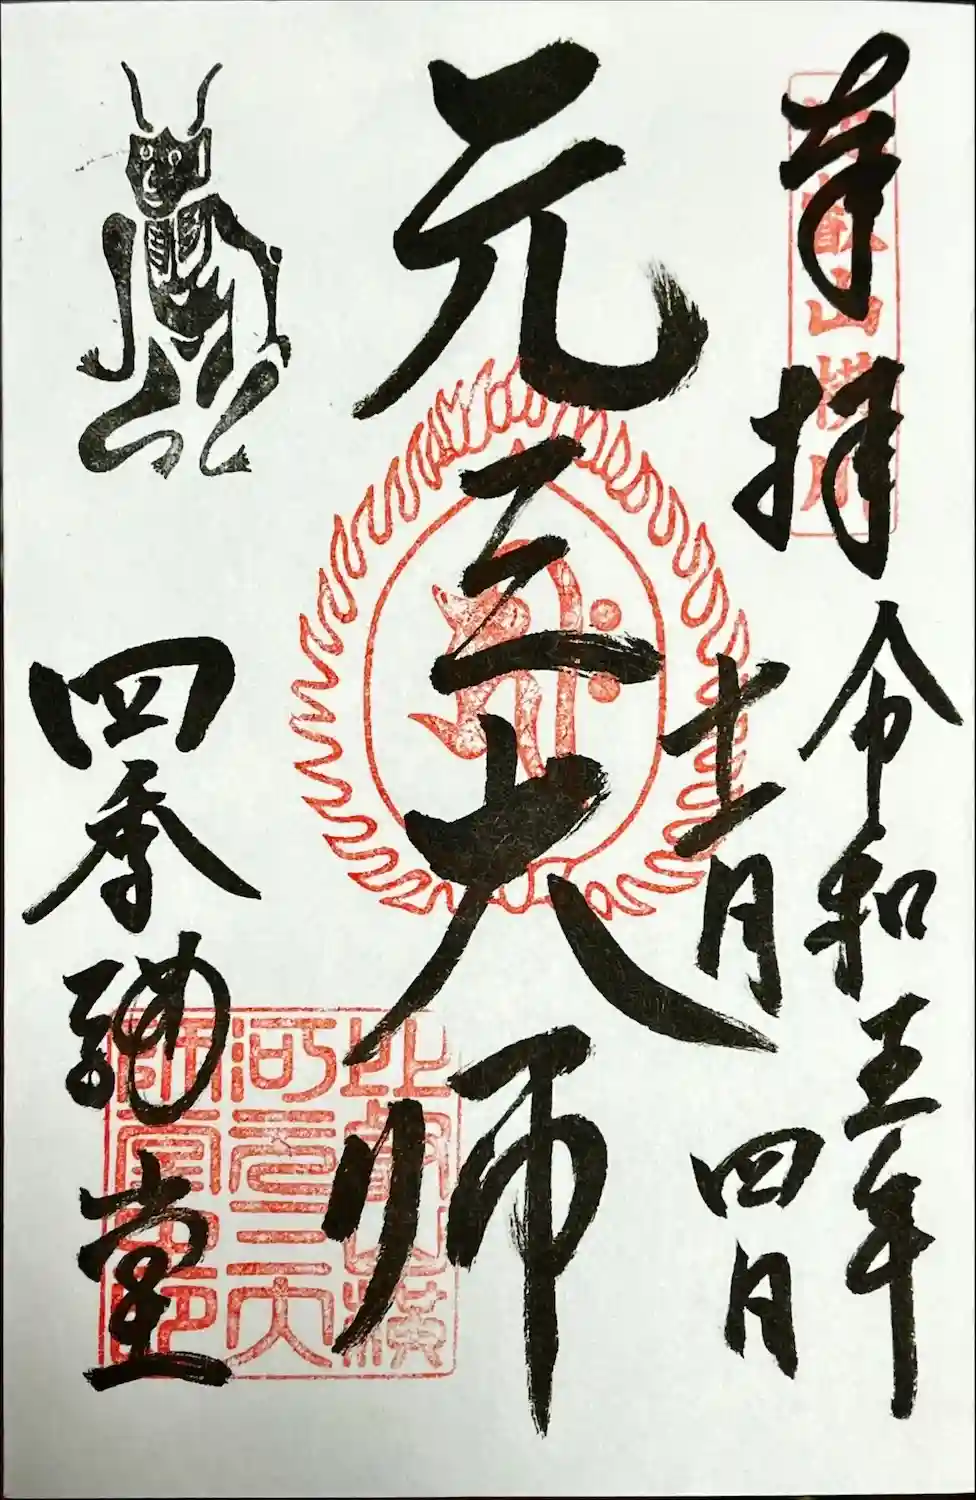 奉拝
比叡山横川
令和五年
十二月
四日
元三大師
四季講堂
比叡山横
河元三大
師堂之印